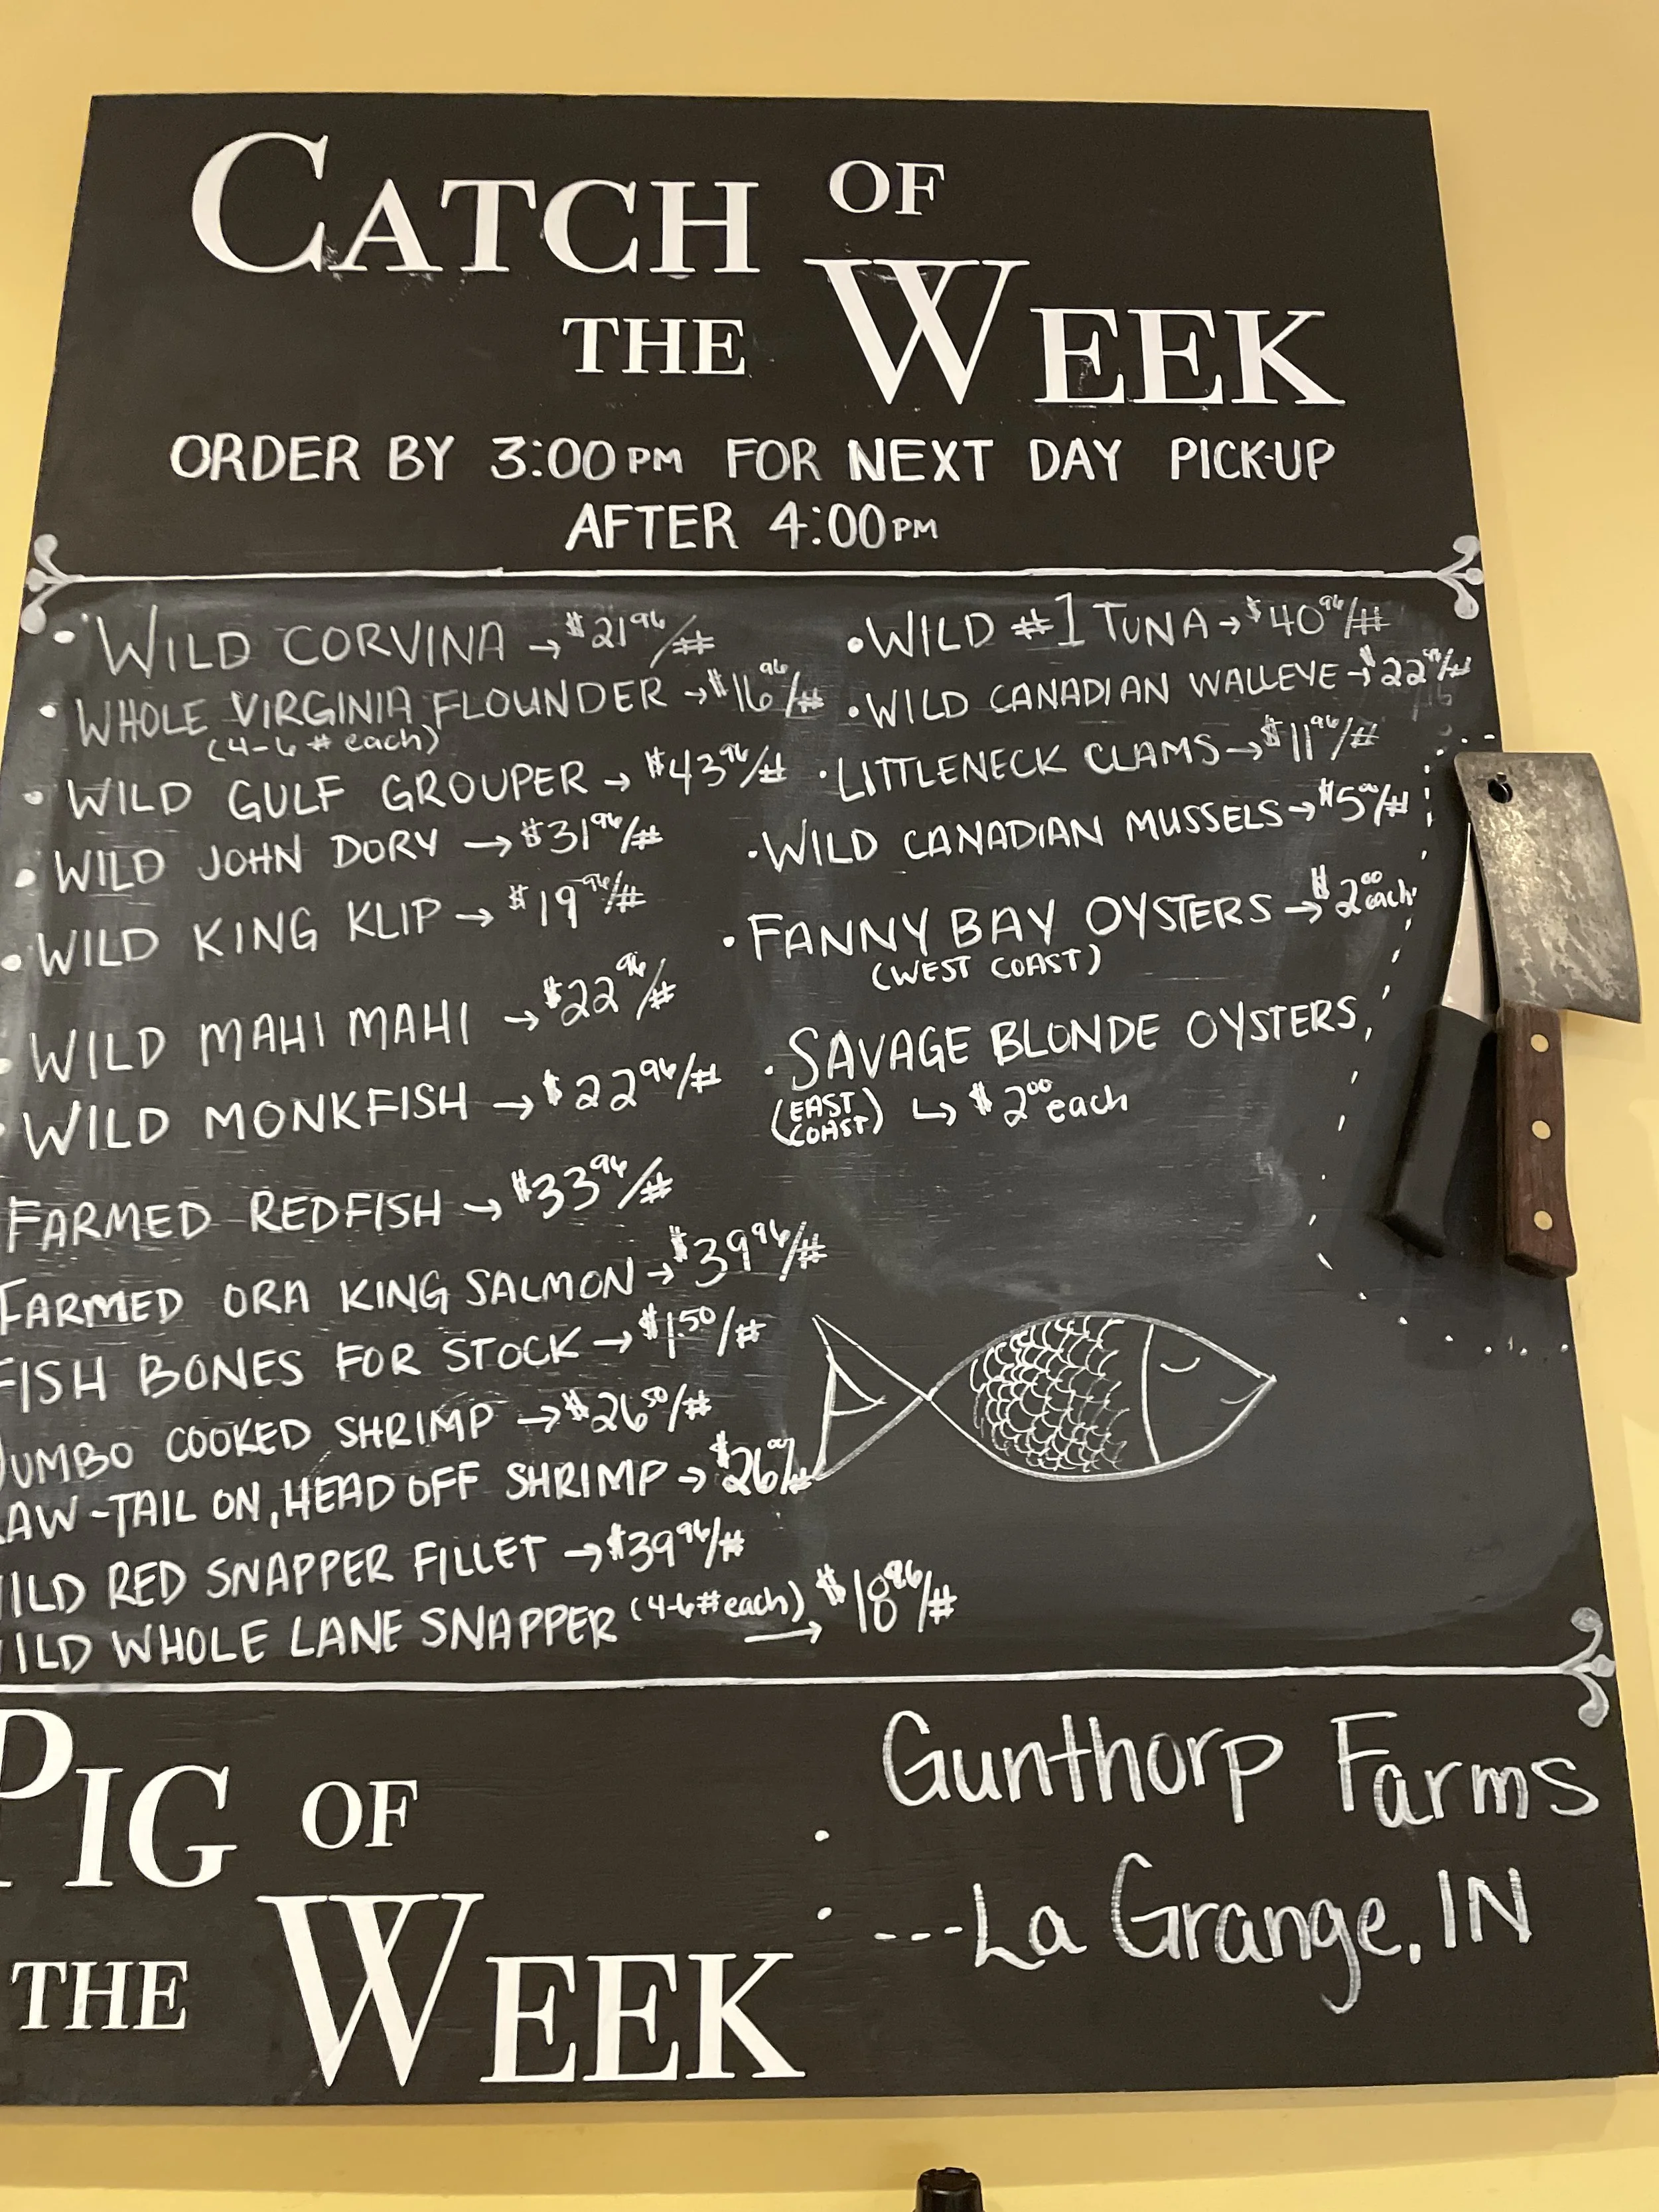 CATCH OF
THE WEEK
ORDER BY 3:00PM FOR NEXT DAY PICK-UP
AFTER 4:00PM
• WILD CORVINA → $21⁹⁶/#
• WHOLE VIRGINIA FLOUNDER → $16⁹⁶/#
(4-6 # each)
• WILD GULF GROUPER → $43⁹⁶/#
• WILD JOHN DORY → $31⁹⁶/#
• WILD KING KLIP → $19⁹⁶/#
• WILD MAHI MAHI → $22⁹⁶/#
• WILD MONKFISH → $22⁹⁶/#
FARMED REDFISH → $33⁹⁶/#
FARMED ORA KING SALMON → $39⁹⁶/#
FISH BONES FOR STOCK → $1.⁵⁰/#
JUMBO COOKED SHRIMP → $26⁵⁰/#
RAW-TAIL ON, HEAD OFF SHRIMP → $26⁰⁰/#
WILD RED SNAPPER FILLET → $39⁹⁶/#
WILD WHOLE LANE SNAPPER (4-6# each) → $18⁹⁶/#
• WILD #1 TUNA → $40⁹⁶/#
• WILD CANADIAN WALLEYE → $22⁹⁶/#
• LITTLENECK CLAMS → $11⁹⁶/#
• WILD CANADIAN MUSSELS → $5⁰⁰/#
• FANNY BAY OYSTERS → $2⁰⁰ each
(WEST COAST)
• SAVAGE BLONDE OYSTERS
(EAST COAST) ↳ $2⁰⁰ each
PIG OF
THE WEEK
: Gunthorp Farms
---La Grange, IN